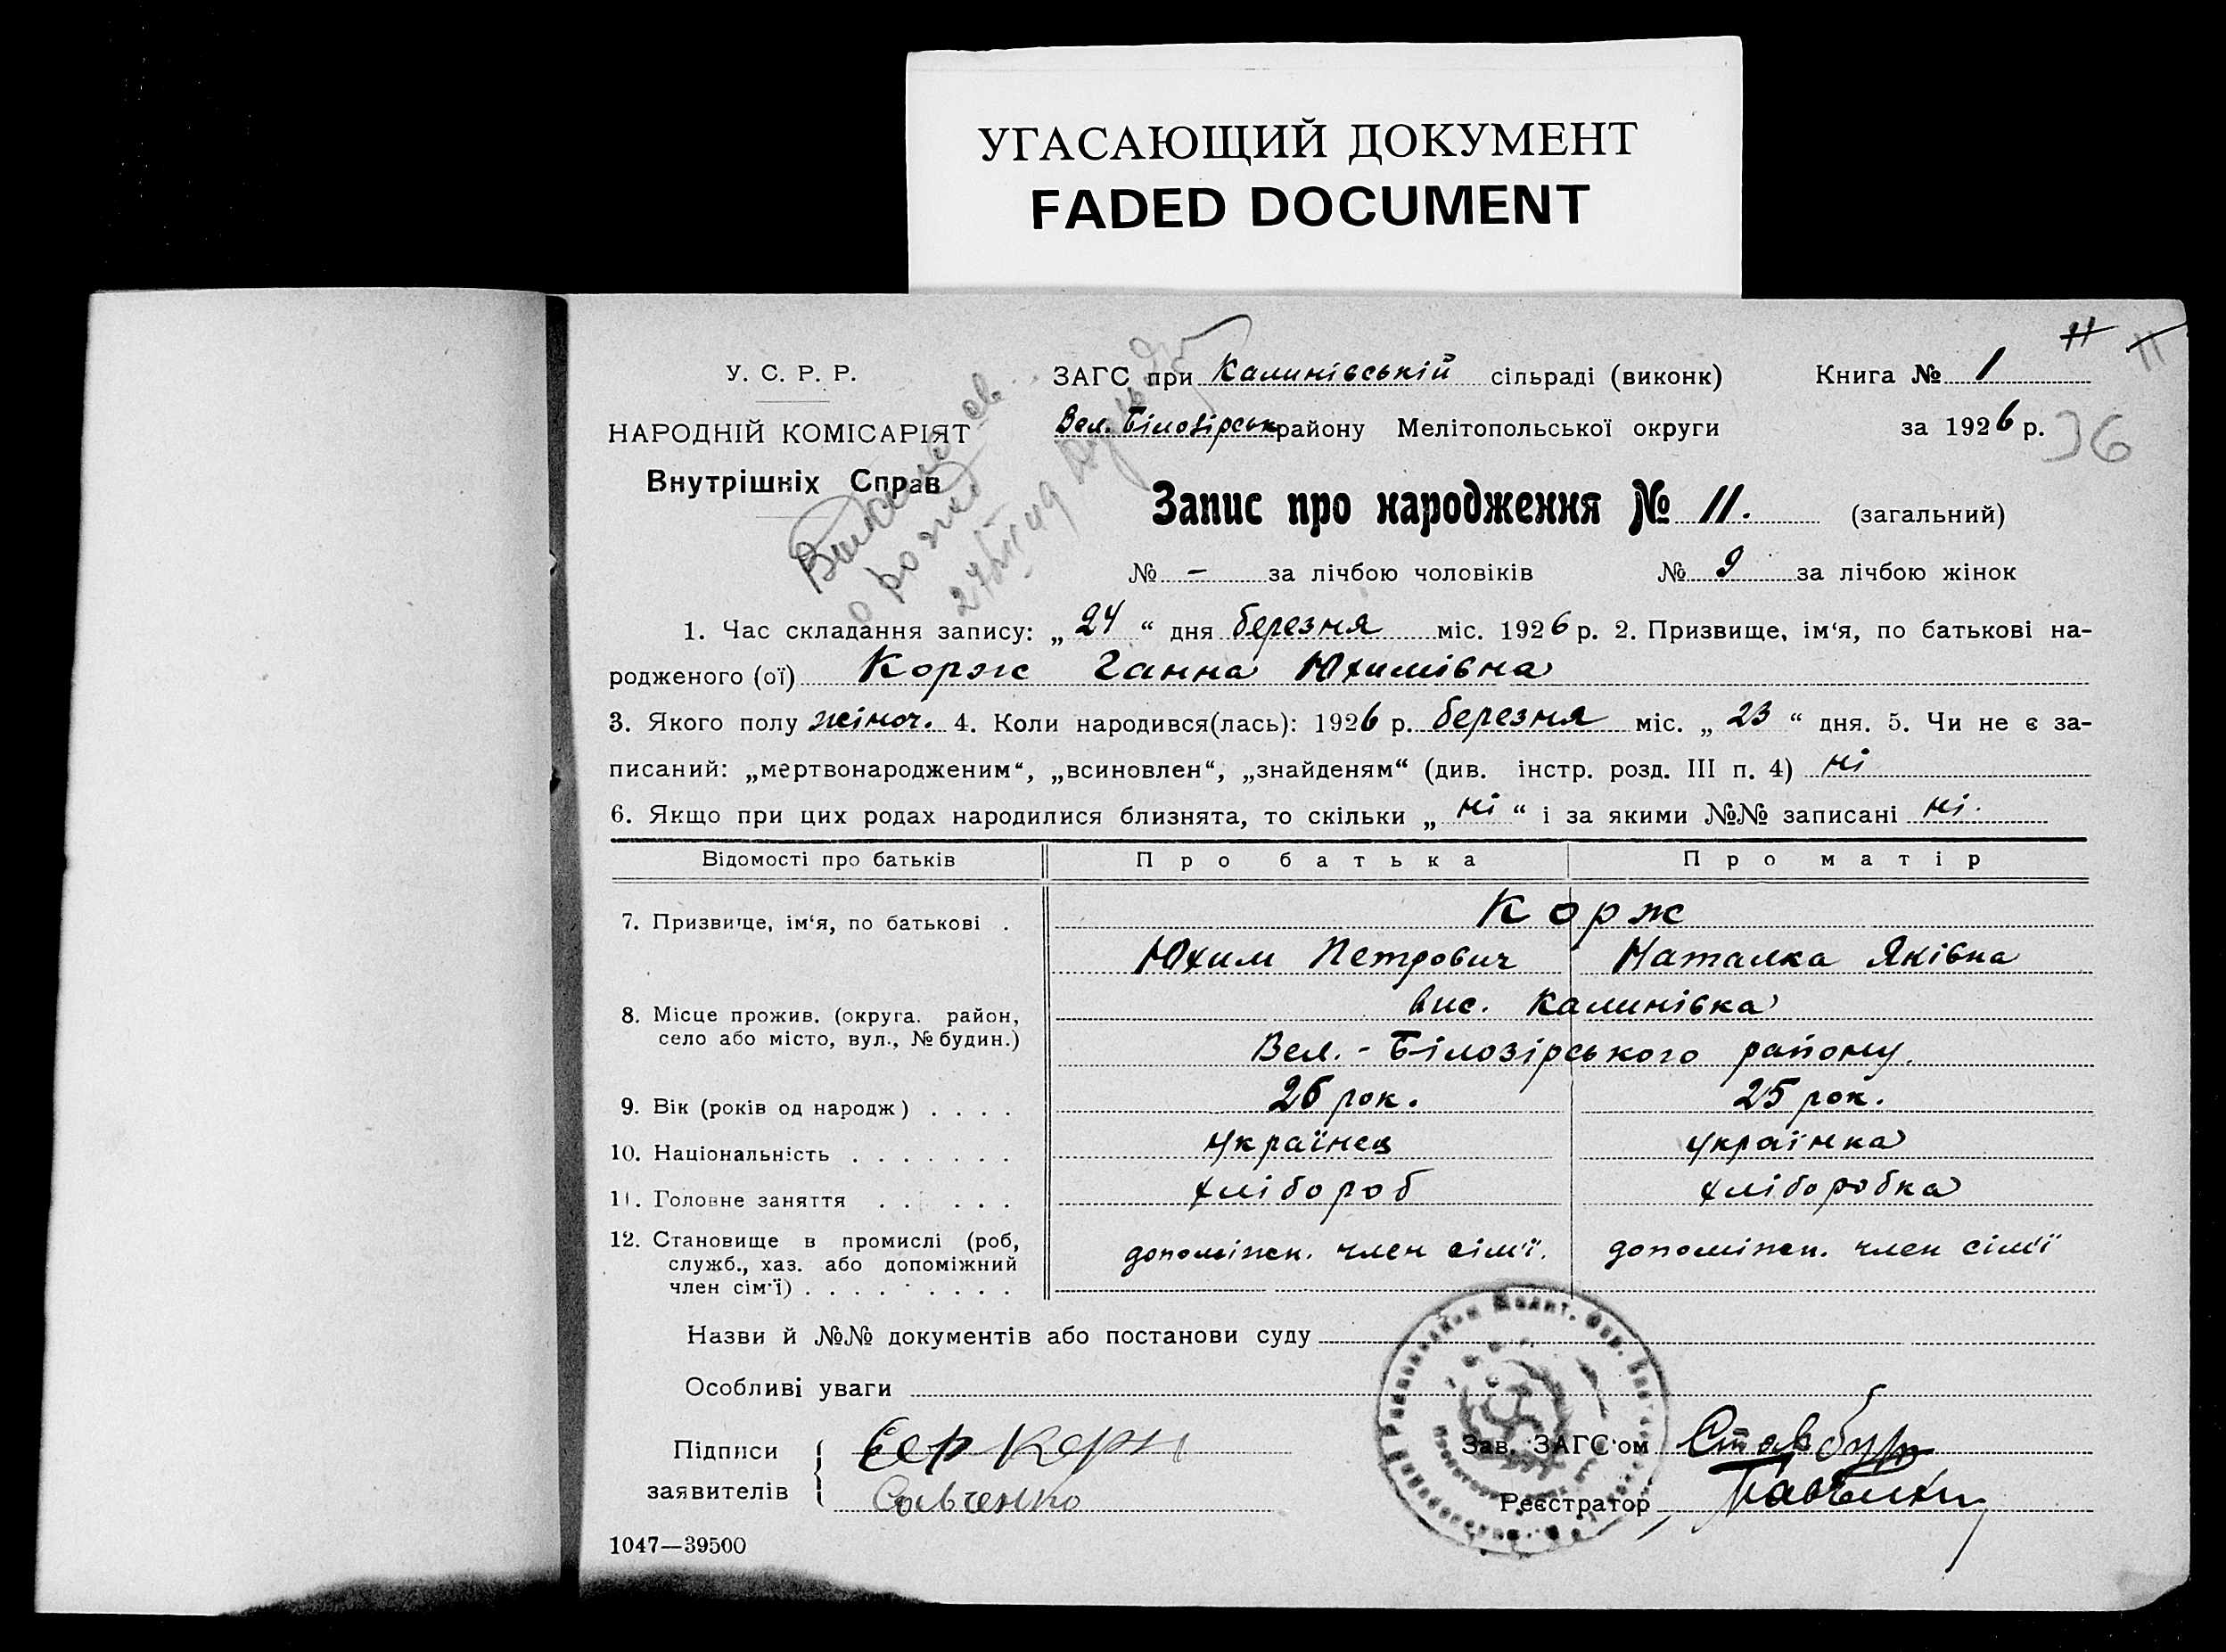 УГАСАЮЩИЙ ДОКУМЕНТ
FADED DOCUMENT
11 11
У. С. Р. Р.
НАРОДНІЙ КОМІСАРІЯТ
Внутрішніх Справ
ЗАГС при Калинівській сільраді (виконк) Книга № 1
Вел. Білозірськ району Мелітопольської округи за 1926 р.
36
Запис про народження № 11. (загальний)
№ - за лічбою чоловіків № 9 за лічбою жінок
1. Час складання запису: „ 24 “ дня березня міс. 1926 р. 2. Призвище, ім‘я, по батькові на-
родженого (ої) Корж Ганна Юхимівна
3. Якого полу жіноч. 4. Коли народився(лась): 1926 р. березня міс. „ 23 “ дня. 5. Чи не є за-
писаний: „мертвонародженим“, „всиновлен“, „знайденям“ (див. інстр. розд. III п. 4) ні
6. Якщо при цих родах народилися близнята, то скільки „ ні “ і за якими №№ записані ні.
Відомості про батьків Про батька Про матір
7. Призвище, ім‘я, по батькові . Корж
Юхим Петрович Наталка Яківна
8. Місце прожив. (округа. район,
село або місто, вул., № будин.)
вис. Калинівка
Вел.-Білозірського району.
9. Вік (років од народж) . . . . 26 рок. 25 рок.
10. Національність . . . . . . . українец українка
11. Головне заняття . . . . . . хлібороб хліборобка
12. Становище в промислі (роб,
служб., хаз. або допоміжний
член сім‘ї) . . . . . . . . .
допоміжн. член сім'ї. допоміжн. член сім'ї
Назви й №№ документів або постанови суду
Особливі уваги
Підписи
заявителів
Корж
Савченко
Зав. ЗАГС‘ом
Реєстратор
1047—39500